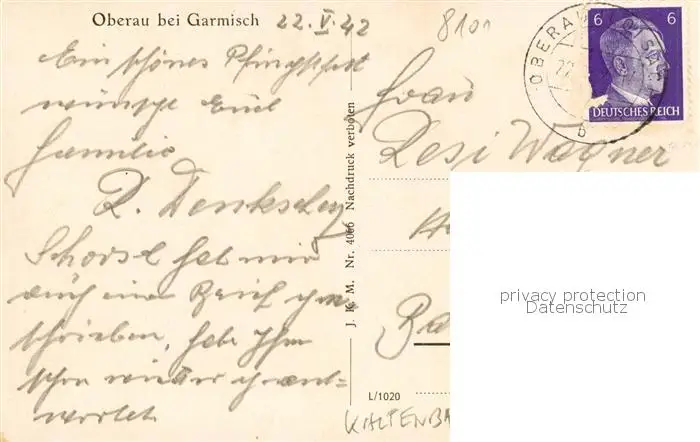 Oberau bei Garmisch
22.V.42
8100
Ein schönes Pfingstfest
wünscht Euch
Familie
Schorsl hat mir
auch einen Brief ge-
schrieben, habe Ihm
schon wieder geant-
wortet.
J. K. M. Nr. 4066 Nachdruck verboten
L/1020
Frau
Resi Wagner
KALTENBA
OBERAU
6 6
DEUTSCHES REICH
b
privacy protection
Datenschutz